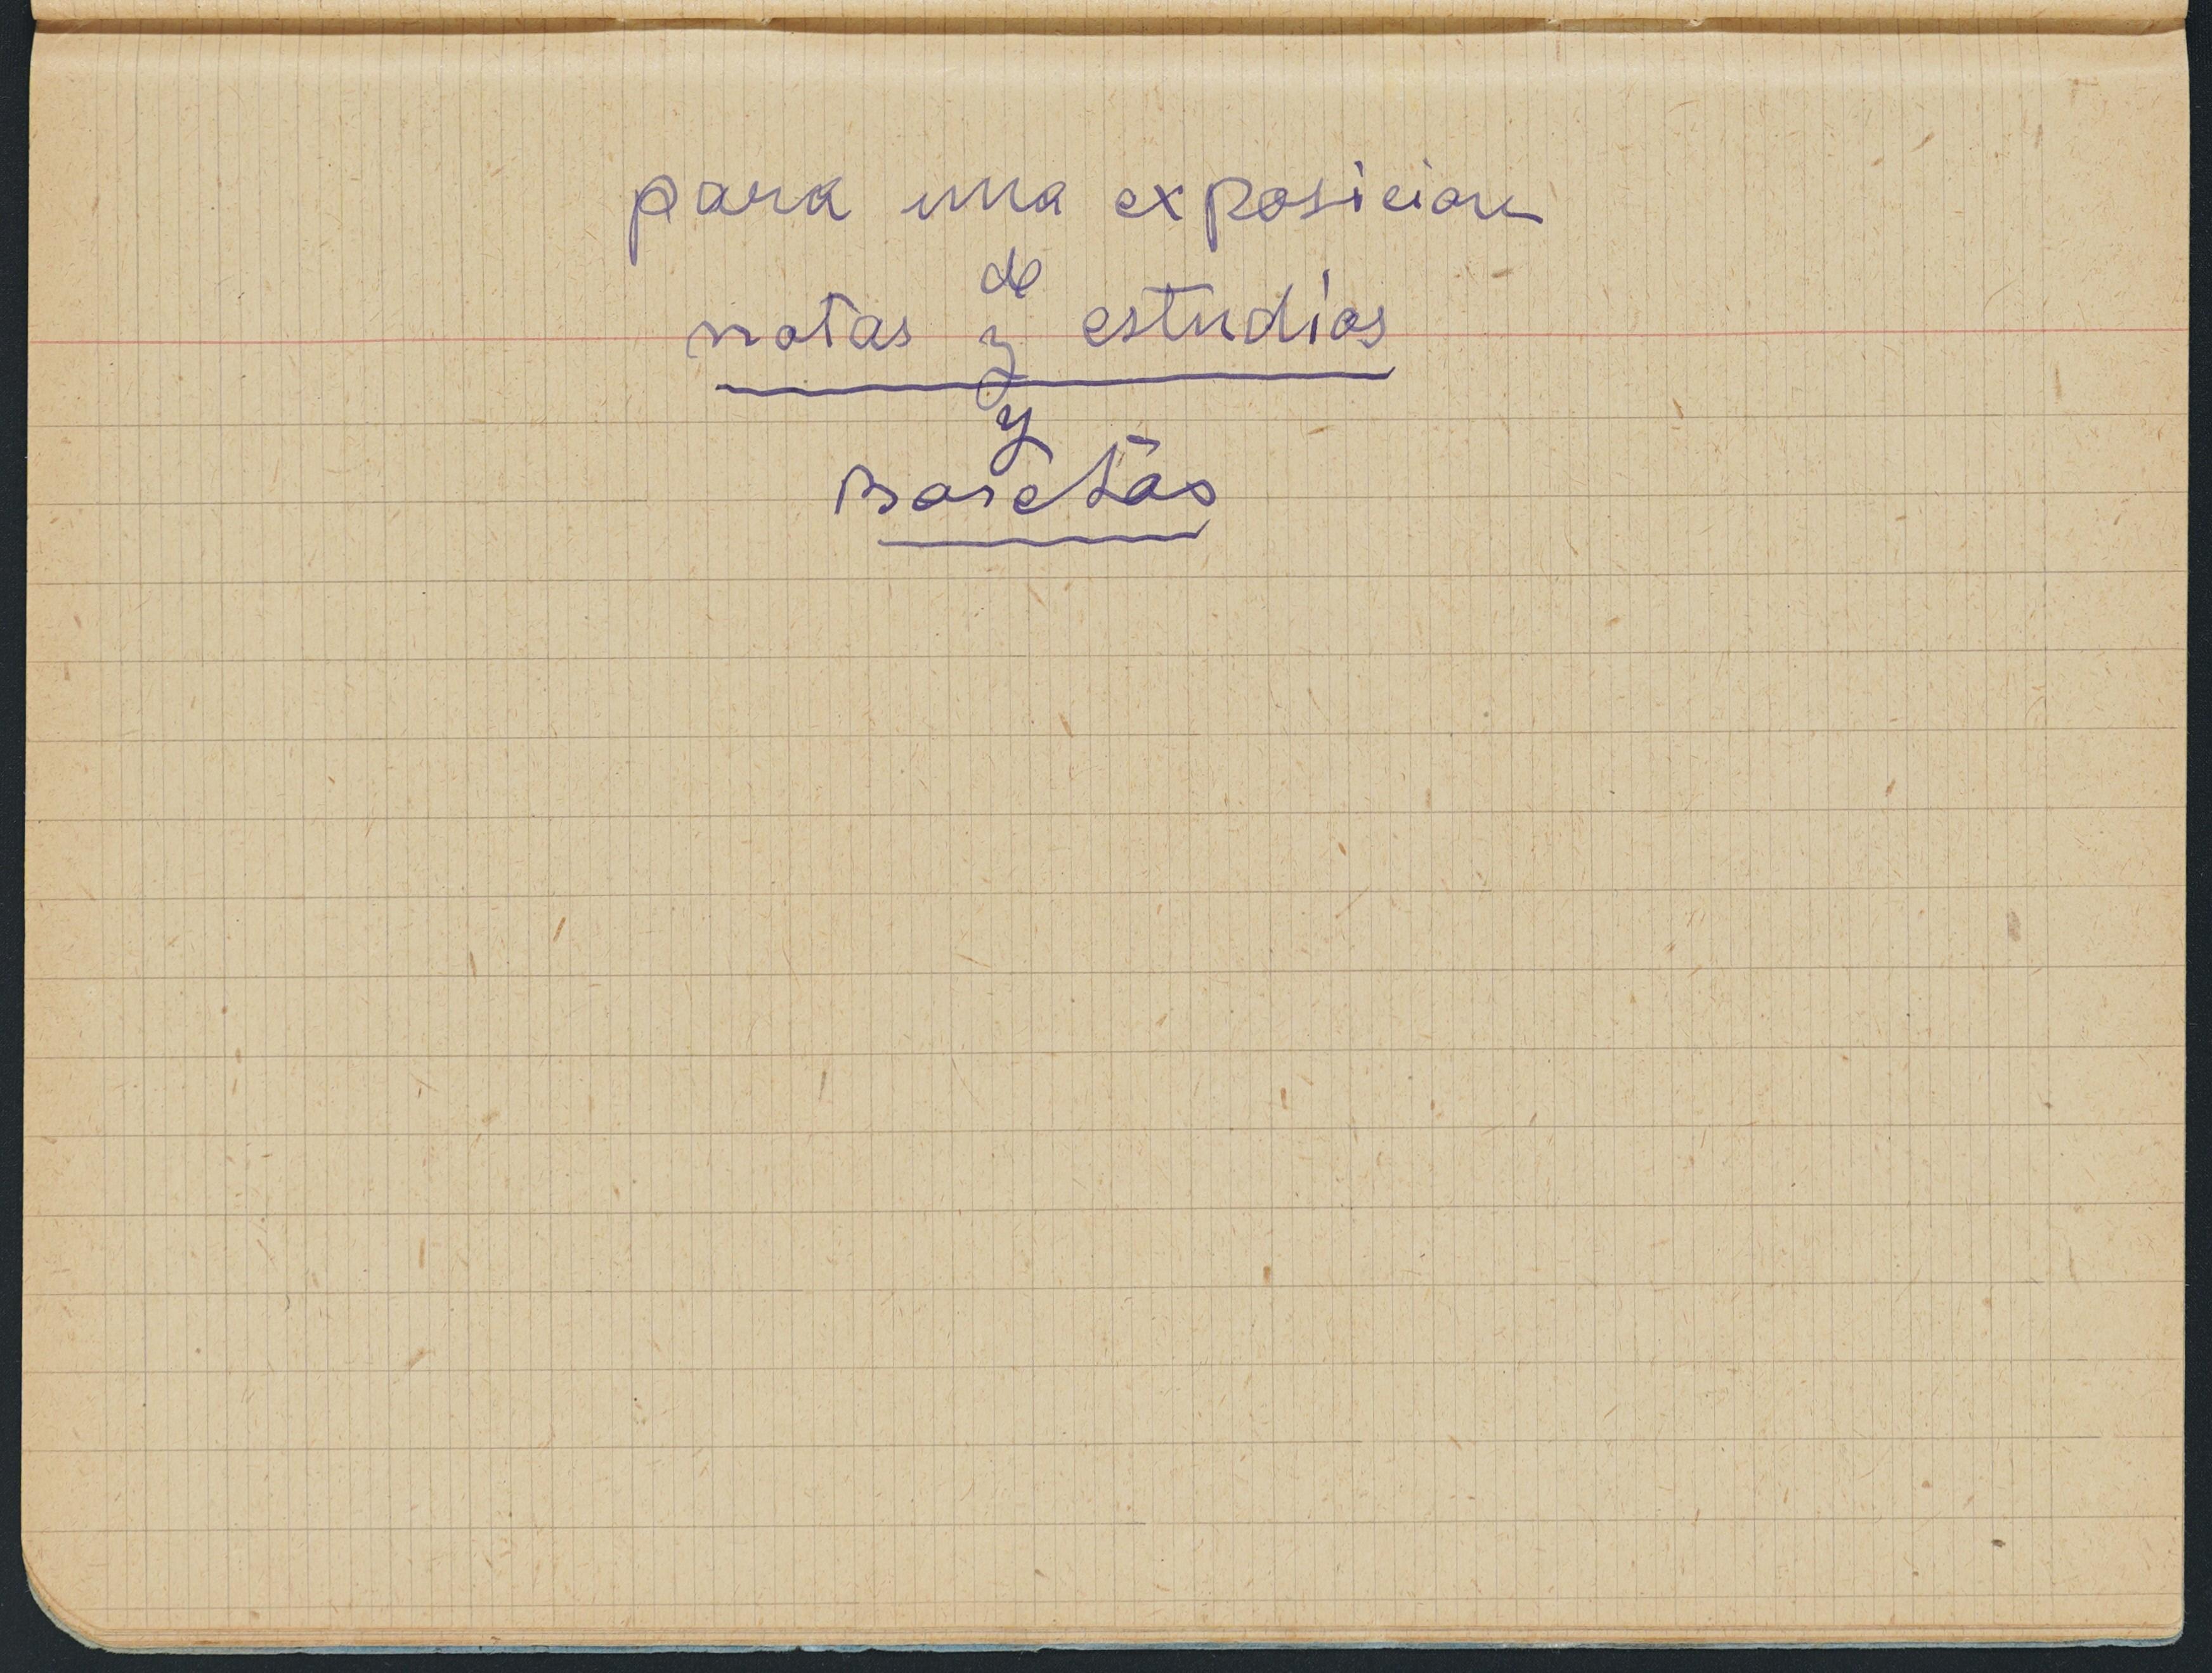 para una exposicion
de
notas y estudios
y
bocetos